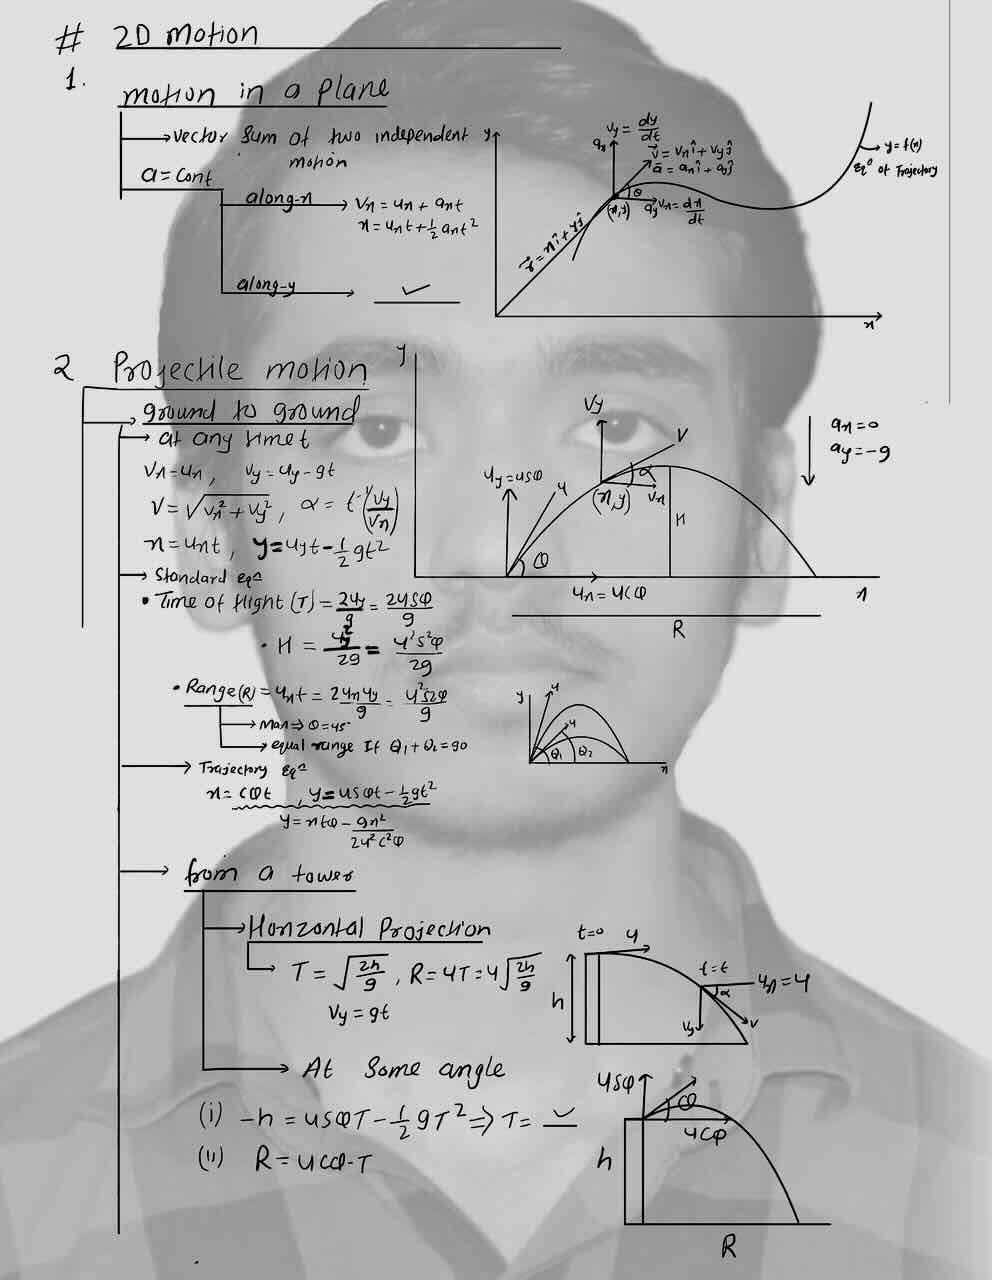 # 2D motion
1.
motion in a plane
→ vector sum of two independent
motion
a = cont
along-x → Vx = ux + axt
x = uxt + ½axt²
along-y → ✓
y
Vy = dy/dt
ax
v⃗ = vxî + vyĵ
a⃗ = axî + ayĵ
θ
(x,y)
ay Vx = dx/dt
r⃗ = xî + yĵ
→ y = f(x)
Eqⁿ of Trajectory
x
2 Projectile motion
→ ground to ground
→ at any time t
Vx = ux, Vy = uy - gt
V = √(Vx² + Vy²), α = t⁻¹(Vy/Vx)
x = uxt, y = uyt - ½gt²
→ Standard eqⁿ
• Time of flight (T) = 2uy/g = 2usθ/g
• H = uy²/2g = u²s²θ/2g
• Range(R) = uxt = 2uxuy/g = u²s2θ/g
→ max ⇒ θ = 45°
→ equal range If θ1 + θ2 = 90
→ Trajectory Eqⁿ
x = cθt, y = usθt - ½gt²
y = xtθ - gx²/2u²c²θ
y
Vy
V
α
Vx
(x,y)
uy = usθ
u
H
θ
ux = ucθ
x
R
ax = 0
ay = -g
y
u
u
θ1
θ2
x
→ from a tower
→ Horizontal Projection
T = √(2h/g), R = uT = u√(2h/g)
Vy = gt
t=0 u
h
t=t
ux = u
α
Vy
V
→ At Some angle
(i) -h = usθT - ½gT² ⇒ T = ✓
(ii) R = ucθ·T
usθ
θ
ucθ
h
R